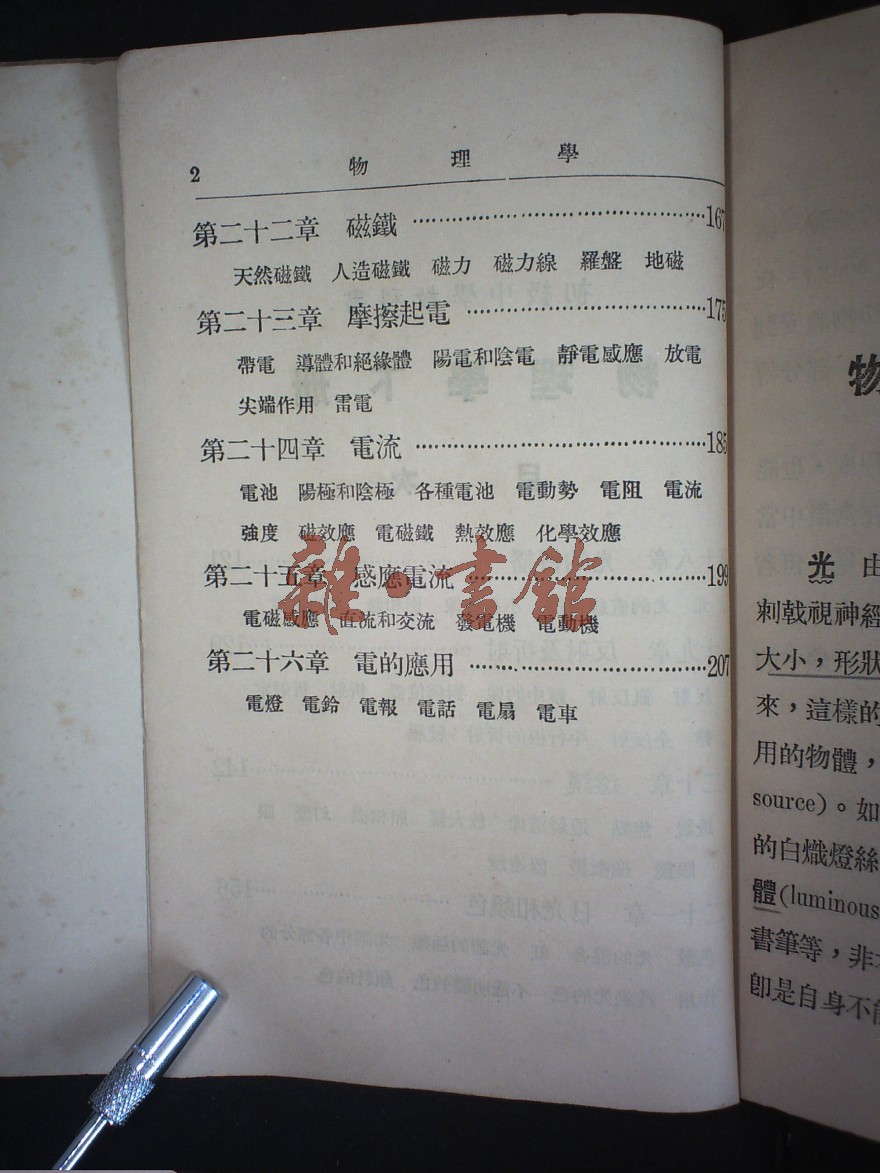 2 物理學
第二十二章 磁鐵 167
天然磁鐵 人造磁鐵 磁力 磁力線 羅盤 地磁
第二十三章 摩擦起電 175
帶電 導體和絕緣體 陽電和陰電 靜電感應 放電
尖端作用 雷電
第二十四章 電流 185
電池 陽極和陰極 各種電池 電動勢 電阻 電流
強度 磁效應 電磁鐵 熱效應 化學效應
第二十五章 感應電流 199
電磁感應 直流和交流 發電機 電動機
第二十六章 電的應用 207
電燈 電鈴 電報 電話 電扇 電車
雜·書館
物
光 由
刺戟視神經
大小，形狀
來，這樣的
用的物體，
source)。如
的白熾燈絲
體(luminous
書筆等，非
卽是自身不能